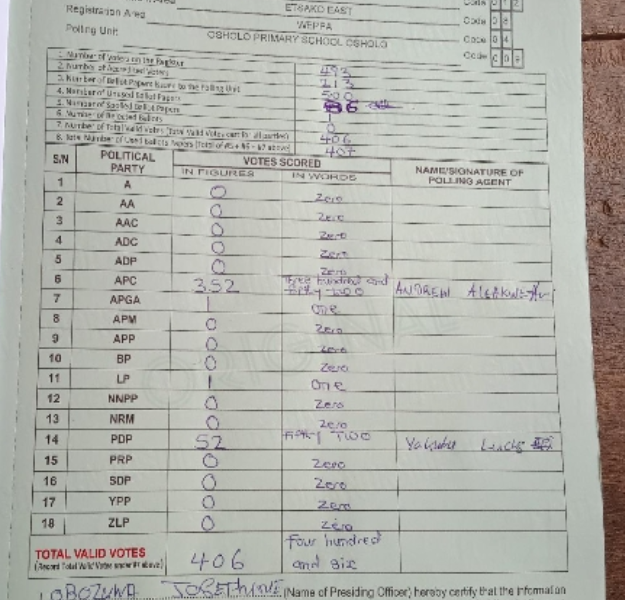 ETSAKO EAST Code
Registration Area WEPPA Code 0 8
Polling Unit OSHOLO PRIMARY SCHOOL OSHOLO Code 0 4
Code 0 0
1. Number of Voters on the Register 493
2. Number of Accredited Voters 213
3. Number of Ballot Papers Issued to the Polling Unit 500
4. Number of Unused Ballot Papers
5. Number of Spoiled Ballot Papers 1
6. Number of Rejected Ballots 0
7. Number of Total Valid Votes (Total Valid Votes cast for all parties) 406
8. Total Number of Used Ballot Papers (Total of #5 + #6 + #7 above) 407
S/N POLITICAL PARTY VOTES SCORED NAME/SIGNATURE OF POLLING AGENT
IN FIGURES IN WORDS
1 A 0 Zero
2 AA 0 Zero
3 AAC 0 Zero
4 ADC 0 Zero
5 ADP 0 Zero
6 APC 352 Three hundred and fifty Two ANDREW
7 APGA 1 One
8 APM 0 Zero
9 APP 0 Zero
10 BP 0 Zero
11 LP 1 One
12 NNPP 0 Zero
13 NRM 0 Zero
14 PDP 52 Fifty Two
15 PRP 0 Zero
16 SDP 0 Zero
17 YPP 0 Zero
18 ZLP 0 Zero
TOTAL VALID VOTES 406 Four hundred and six
(Record Total Valid Votes under #7 above)
(Name of Presiding Officer) hereby certify that the information